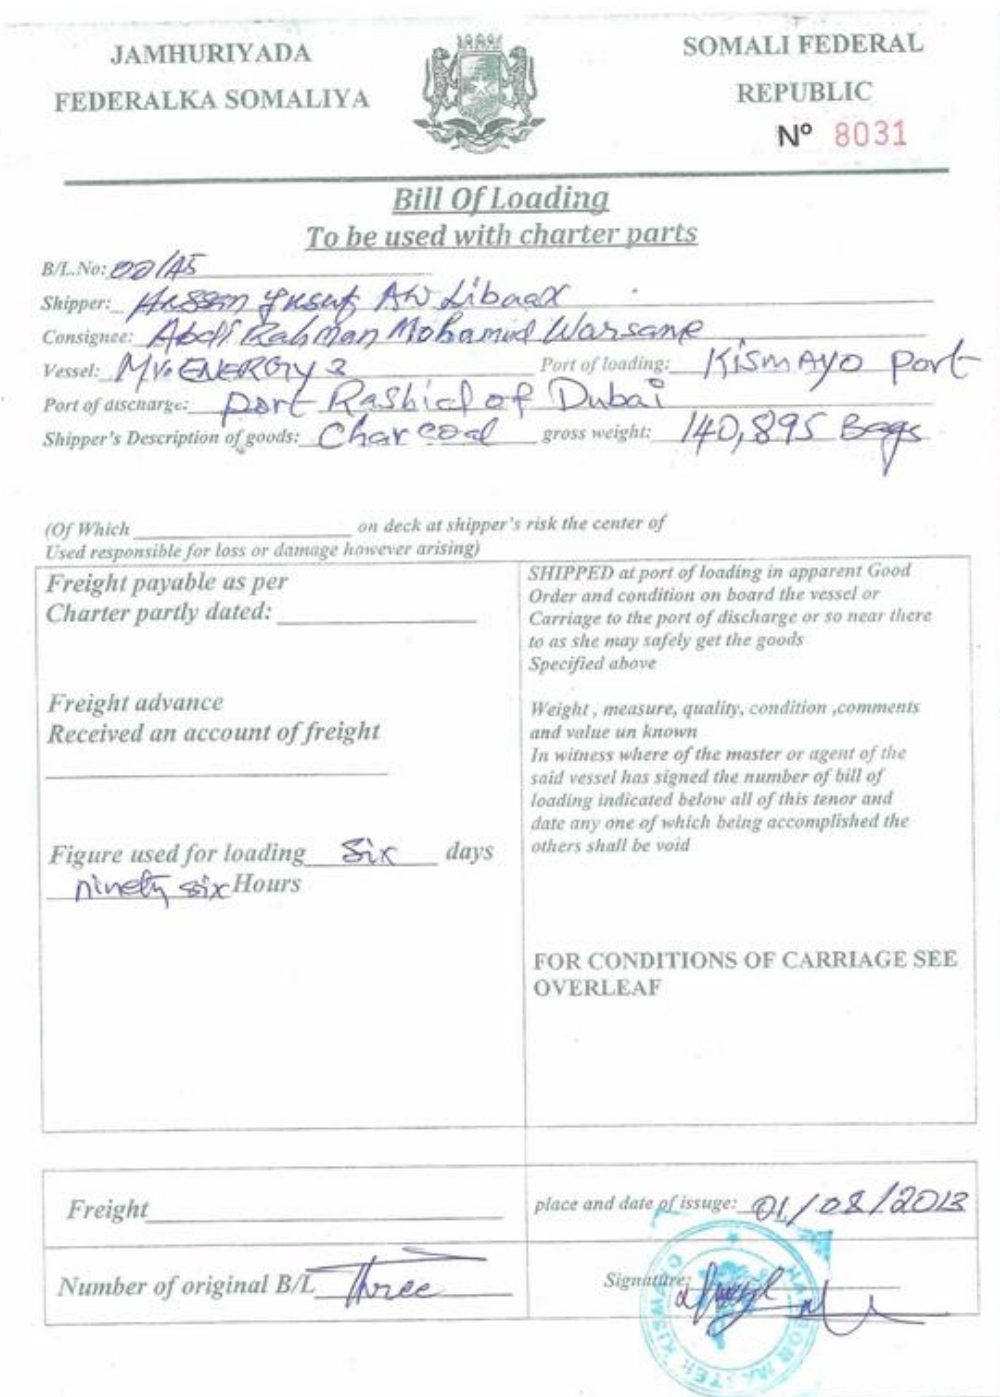 JAMHURIYADA
FEDERALKA SOMALIYA
SOMALI FEDERAL
REPUBLIC
Nº 8031
Bill Of Loading
To be used with charter parts
B/L.No: 00/A5
Shipper: Hassan Yusuf Aw Libaax
Consignee: Abdi Rahman Mohamud Warsame
Vessel: MV. ENERGY 3 Port of loading: Kismayo port
Port of discharge: port Rashid of Dubai
Shipper's Description of goods: Charcoal gross weight: 140,895 Bags
(Of Which on deck at shipper's risk the center of
Used responsible for loss or damage however arising)
Freight payable as per
Charter partly dated:
Freight advance
Received an account of freight
Figure used for loading Six days
ninety six Hours
SHIPPED at port of loading in apparent Good
Order and condition on board the vessel or
Carriage to the port of discharge or so near there
to as she may safely get the goods
Specified above
Weight , measure, quality, condition ,comments
and value un known
In witness where of the master or agent of the
said vessel has signed the number of bill of
loading indicated below all of this tenor and
date any one of which being accomplished the
others shall be void
FOR CONDITIONS OF CARRIAGE SEE
OVERLEAF
Freight
place and date of issuge: 01/08/2013
Number of original B/L Three
Signature:
HARBOR MASTER KISMAYO